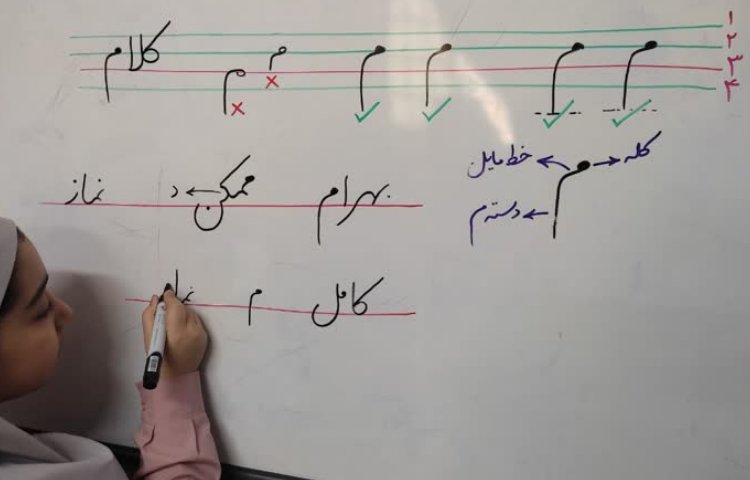 ۱
۲
۳
۴
م م م م م م کلام
✓ ✓ ✓ ✓ × ×
کله → م ← خط مایل
← دسته م
بهرام ممکن ← د نماز
کامل م نما